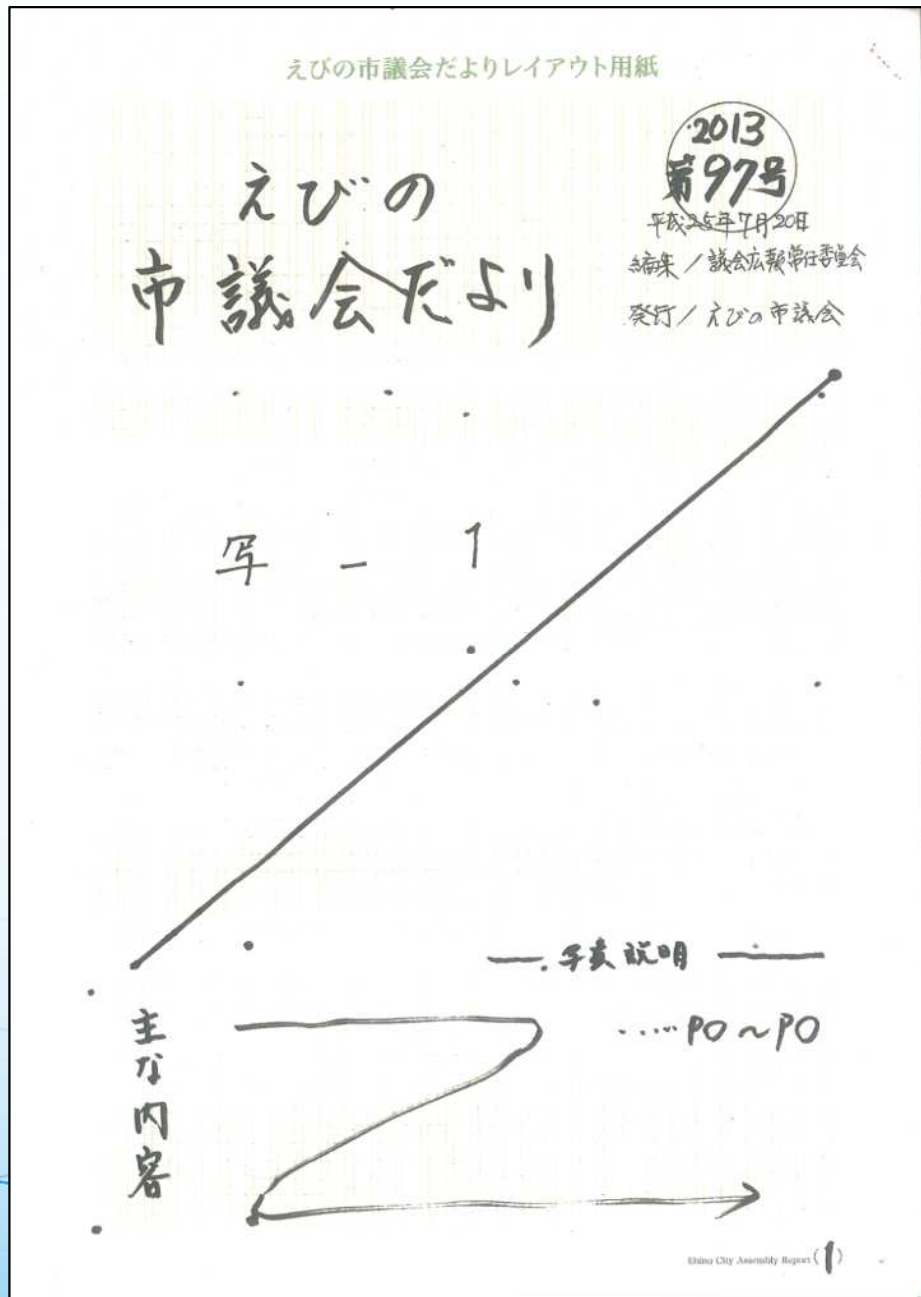 えびの市議会だよりレイアウト用紙
2013
第97号
平成25年7月20日
編集/議会広報常任委員会
発行/えびの市議会
えびの
市議会だより
写-1
写真説明
主な内容
.....P0~P0
Ebino City Assembly Report (1)